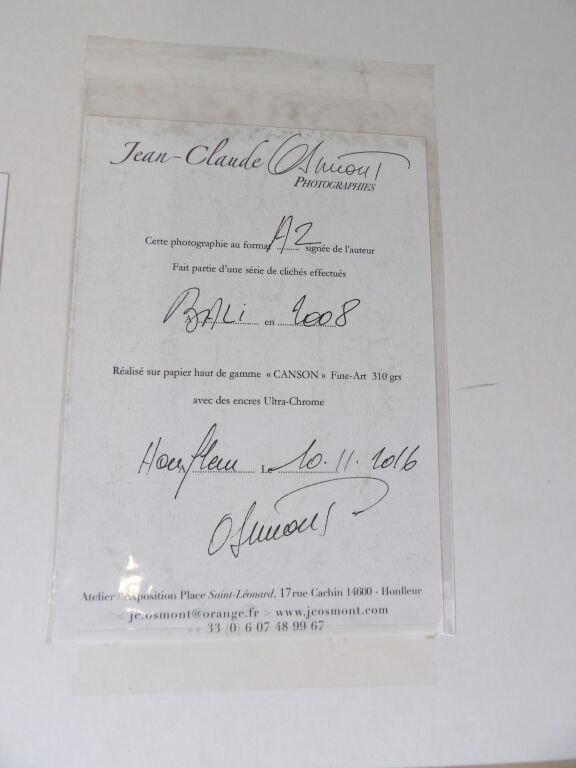 Jean-Claude Osmont
PHOTOGRAPHIES
Cette photographie au format A2 signée de l'auteur
Fait partie d'une série de clichés effectués
BALi en 2008
Réalisé sur papier haut de gamme « CANSON » Fine-Art 310 grs
avec des encres Ultra-Chrome
Honfleur Le 20.11.2016
Osmont
Atelier Exposition Place Saint-Léonard, 17 rue Cachin 14600 - Honfleur
< jc.osmont@orange.fr > www.jcosmont.com
++ 33 (0) 6 07 48 99 67